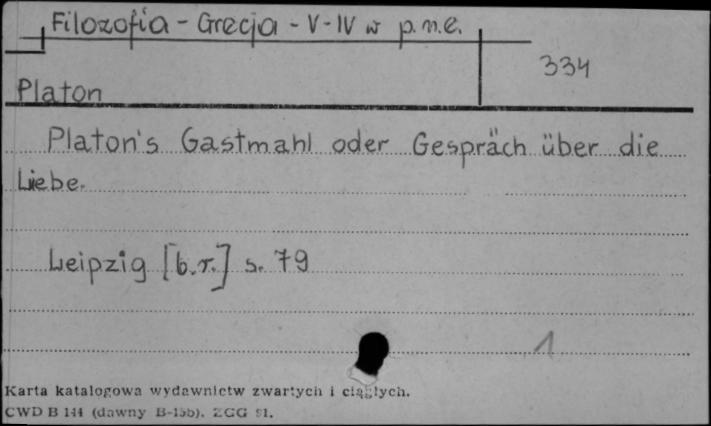 Filozofia - Grecja - V-IV w p.n.e.
334
Platon
Platon's Gastmahl oder Gespräch über die
Liebe.
Leipzig [b.r.] s. 79
1
Karta katalogowa wydawnictw zwartych i ciągłych.
CWD B 144 (dawny B-15b). ZGG 91.